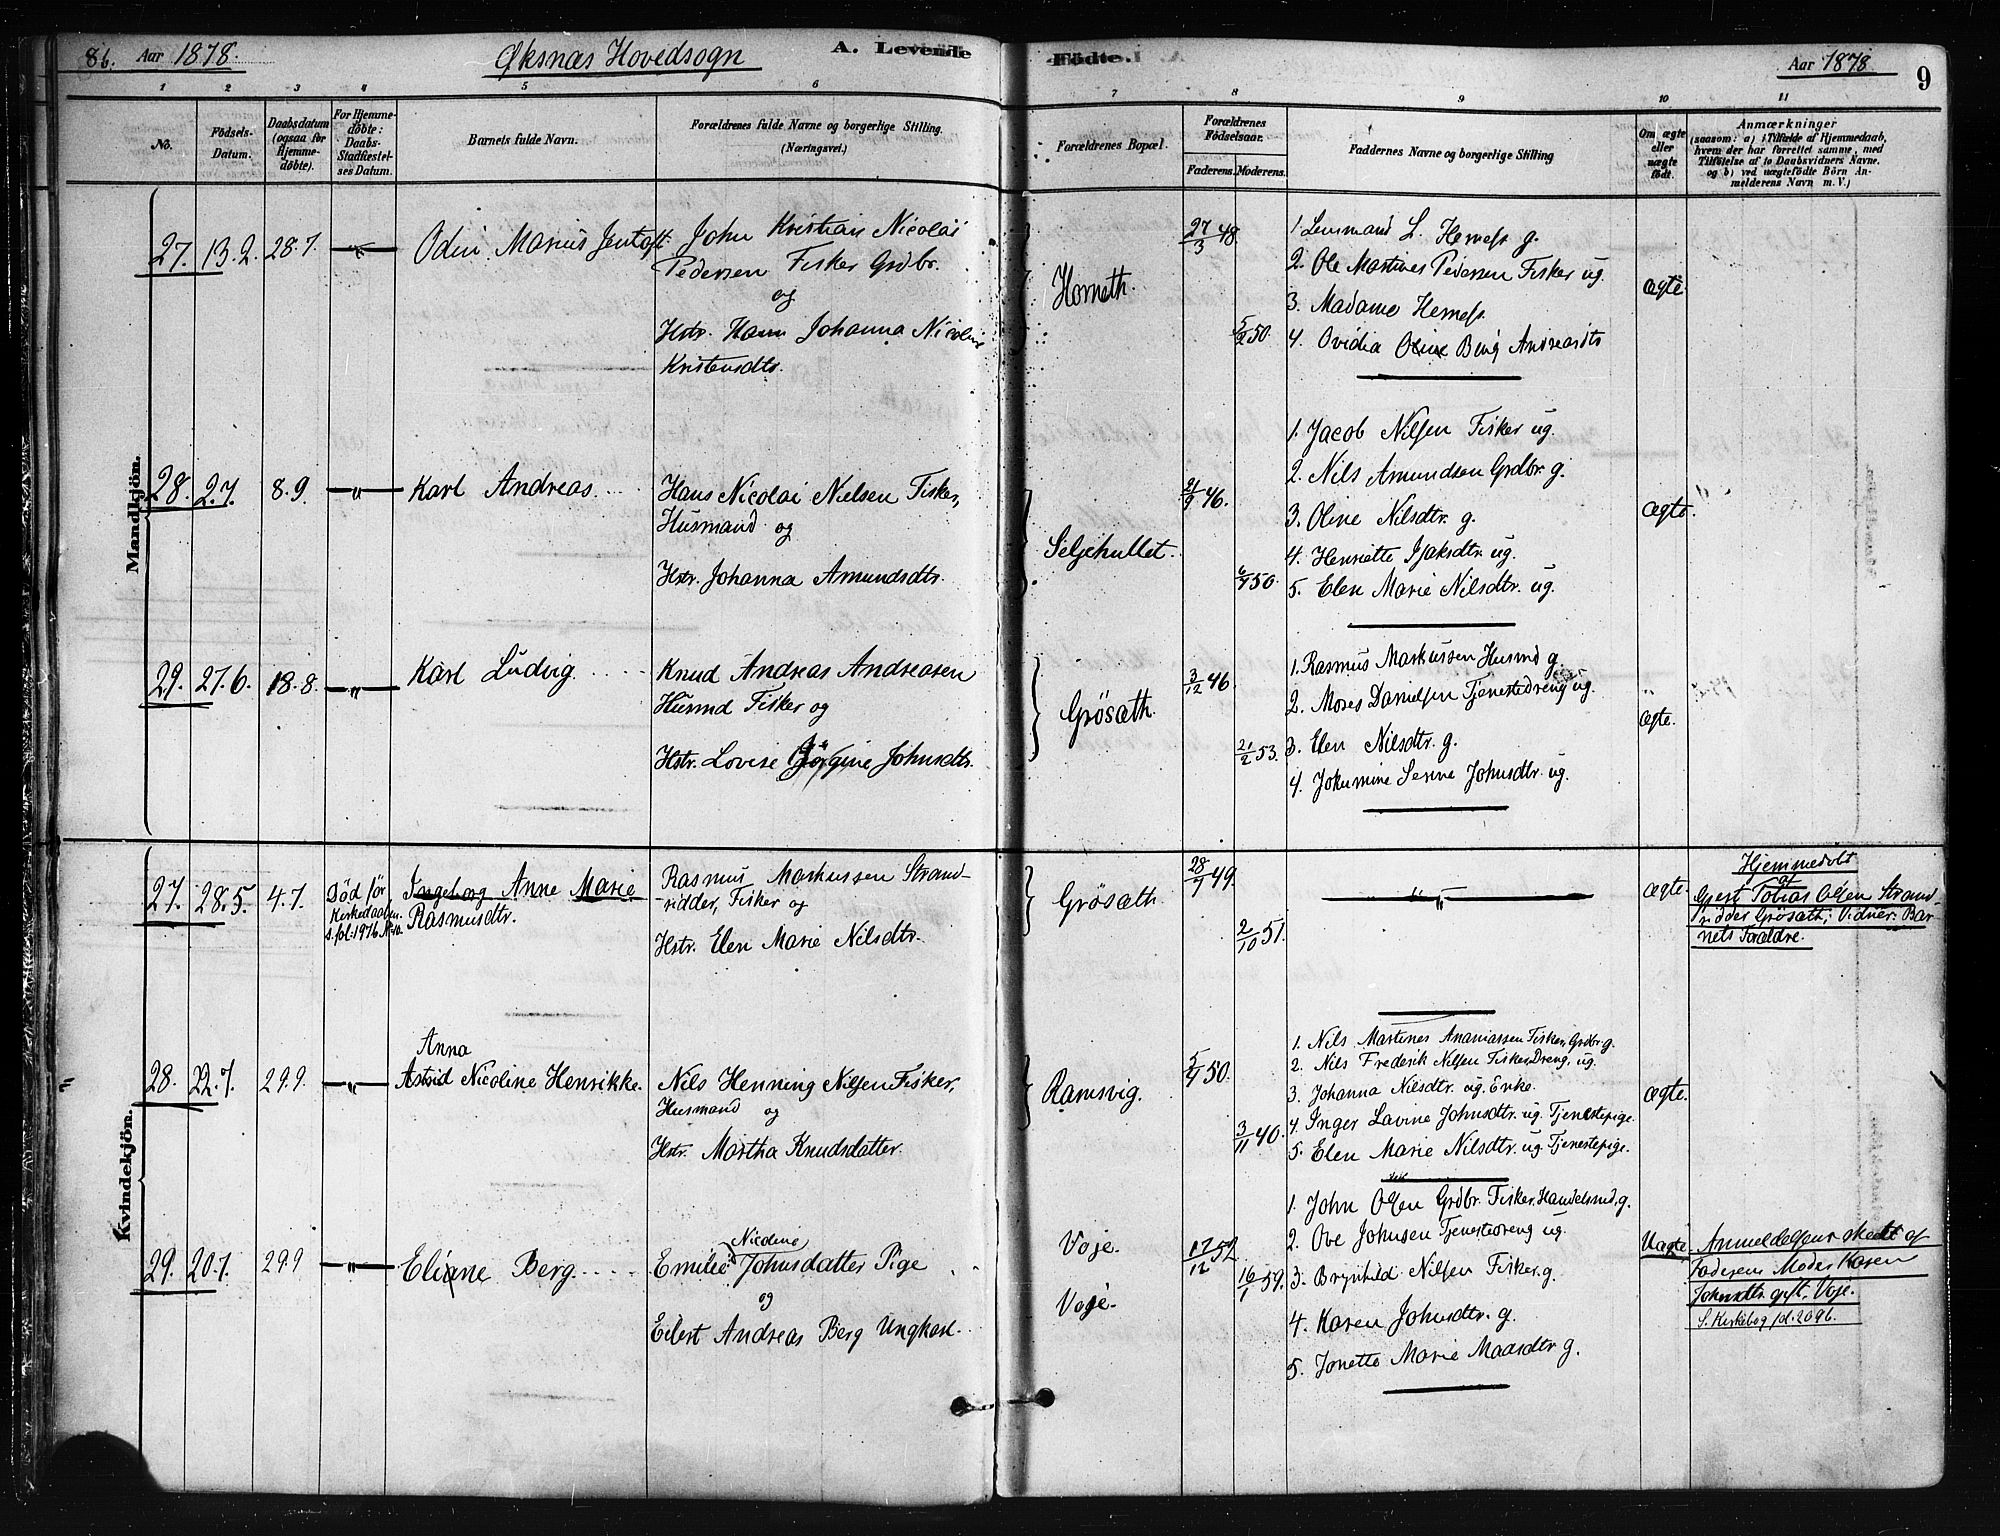 8b. Aar 1878. Øksnæs Hovedsogn A. Levende Fødte. Aar 1878 9
1 2 3 4 5 6 7 8 9 10 11
No. Fødsels-Datum. Daabsdatum (ogsaa for Hjemmedøbte). For Hjemmedøbte: Daabs-Stadfæstelses Datum. Barnets fulde Navn. Forældrenes fulde Navne og borgerlige Stilling. (Næringsvei.) Forældrenes Bopæl. Forældrenes Fødselsaar. Faderens. Moderens. Faddernes Navne og borgerlige Stilling Om ægte eller uægte født. Anmærkninger
(saasom: a) i Tilfælde af Hjemmedaab,
hvem der har forrettet samme, med
Tilføielse af to Daabsvidners Navne.
og b) ved uægtefødte Børn An-
melderens Navn m. V.)
Mandkjön.
27. 13.2. 28.7. — " — Odin Marius Jentoft. John Kristian Nicolai
Pedersen Fisker Grdbr.
og
Hstr. Hann Johanna Nicoline
Kristensdtr.
Horneth.
27/3 48.
5/2 50.
1. Lensmand L. Hemess g.
2. Ole Martines Pedersen Fisker ug.
3. Madame Hemess
4. Ovidia Oline Berg Andreasdtr
ægte.
28. 2.7. 8.9. — " — Karl Andreas. Hans Nicolai Nielsen Fisker,
Husmand og
Hstr. Johanna Amundsdtr.
Seljehullet.
21/9 46.
50.
1. Jacob Nilsen Fisker ug.
2. Nils Amundsen Grdbr. g.
3. Oline Nilsdtr. g.
4. Henriette Isaksdtr. ug.
5. Elen Marie Nilsdtr. ug.
ægte.
29. 27.6. 18.8. — " — Karl Ludvig Knud Andreas Andreasen
Husmd Fisker og
Hstr. Lovise Jørgine Johnsdtr.
Grösæth.
3/12 46.
21/2 53.
1. Rasmus Markussen Husmd g.
2. Moses Danielsen Tjenestedreng ug.
3. Elen Nilsdtr. g.
4. Jokumine Serine Johnsdtr. ug.
"
ægte.
Kvindekjön.
27. 28.5. 4.7. Död før
Kirkedaaben.
s. fol. 197b No 10.
Ingeborg Anne Marie
Rasmusdtr.
Rasmus Markussen Strand-
ridder, Fisker og
Hstr. Elen Marie Nilsdtr.
Grösæth.
28/7 49.
2/10 51.
— " —
ægte.
Hjemmedöbt
af
Gjert Tobias Olsen Strand-
ridder Grösæth; Vidner: Bar-
nets Forældre.
28. 22.7. 29.9. — " — Anna
Astrid Nicoline Henrikke. Nils Henning Nilsen Fisker,
Husmand og
Hstr. Martha Knudsdatter.
Ramsvig.
50.
3/11 40.
1. Nils Martines Ananiassen Fisker, Grdbr g.
2. Nils Frederik Nilsen Fisker Dreng, ug.
3. Johanna Nilsdtr. ug. Enke.
4. Inger Lavine Johnsdtr. ug. Tjenestepige.
5. Elen Marie Nilsdtr. ug. Tjenestepige.
ægte.
29. 20.7. 29.9 — " — Eliane Berg. Emilie Nicoline Johnsdatter Pige
og
Eilert Andreas Berg Ungkarl.
Voje.
Voje.
17/12 52
16/1 59.
1. John Olsen Grdbr. Fisker, Handelsmd, g.
2. Ove Johnsen Tjenestedreng ug.
3. Brynhild Nilsen Fisker. g.
4. Karen Johnsdtr. g.
5. Jonette Marie Maasdtr g.
Uægte
Anmeldelsen skeet af
Faderens Moder Karen
Johnsdtr. gift, Voje.
S. Kirkebog fol. 209b.